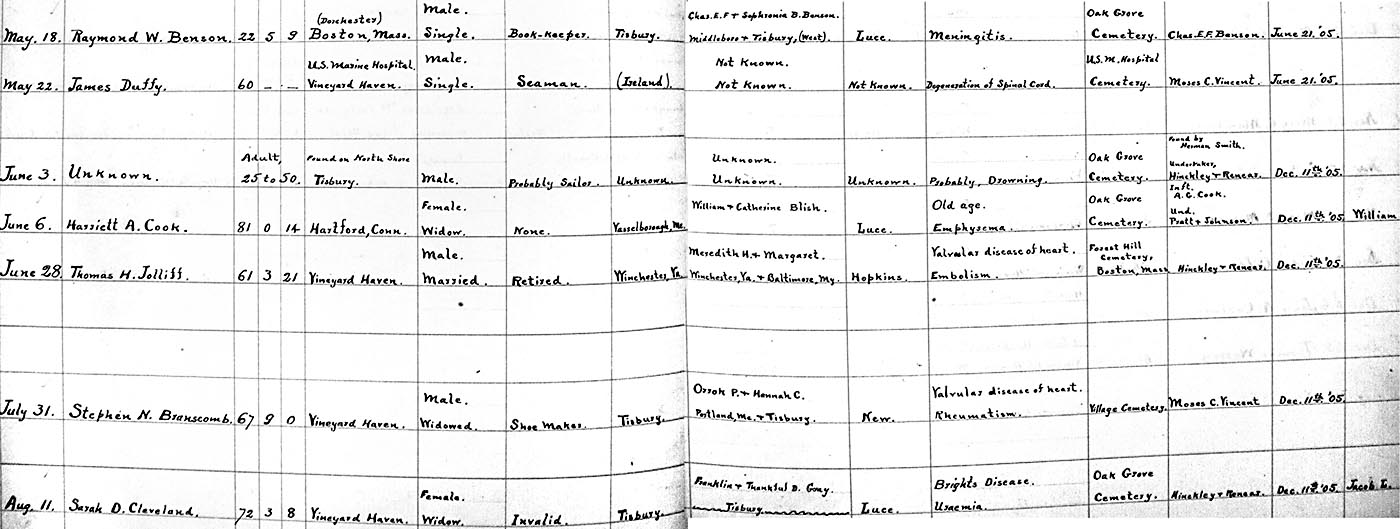 May. 18. Raymond W. Benson. 22 5 9 (Dorchester) Boston, Mass. Male. Single. Book-keeper. Tisbury. Chas. E. F. + Sophronia B. Benson. Middleboro + Tisbury, (West). Luce. Meningitis. Oak Grove Cemetery. Chas. E.F. Benson. June 21. '05.
May 22. James Duffy. 60 — · — U.S. Marine Hospital. Vineyard Haven. Male. Single. Seaman. (Ireland). Not Known. Not Known. Not Known. Degeneration of Spinal Cord. U.S. M. Hospital Cemetery. Moses C. Vincent. June 21. '05.
June 3. Unknown. Adult, 25 to 50. Found on North Shore Tisbury. Male. Probably Sailor. Unknown. Unknown. Unknown. Unknown. Probably, Drowning. Oak Grove Cemetery. Found by Norman Smith. Undertaker, Hinckley + Renear. Dec. 11th '05.
June 6. Harriett A. Cook. 81 0 14 Hartford, Conn. Female. Widow. None. Vasselborough, Me. William + Catherine Blish. Luce. Old age. Emphysema. Oak Grove Cemetery. Inft. A. C. Cook. Und. Pratt + Johnson. Dec. 11th '05. William
June 28. Thomas H. Jolliff. 61 3 21 Vineyard Haven. Male. Married. Retired. Winchester, Va. Meredith H. + Margaret. Winchester, Va. + Baltimore, My. Hopkins. Valvular disease of heart. Embolism. Forest Hill Cemetery, Boston, Mass. Hinckley + Renear. Dec. 11th '05.
July 31. Stephen N. Branscomb. 67 9 0 Vineyard Haven. Male. Widowed. Shoe Maker. Tisbury. Orrok P. + Hannah C. Portland, Me. + Tisbury. New. Valvular disease of heart. Rheumatism. Village Cemetery. Moses C. Vincent Dec. 11th '05.
Aug. 11. Sarah D. Cleveland. 72 3 8 Vineyard Haven. Female. Widow. Invalid. Tisbury. Franklin + Thankful D. Gray. Tisbury. Luce. Brights Disease. Uraemia. Oak Grove Cemetery. Hinckley + Renear. Dec. 11th '05. Jacob L.